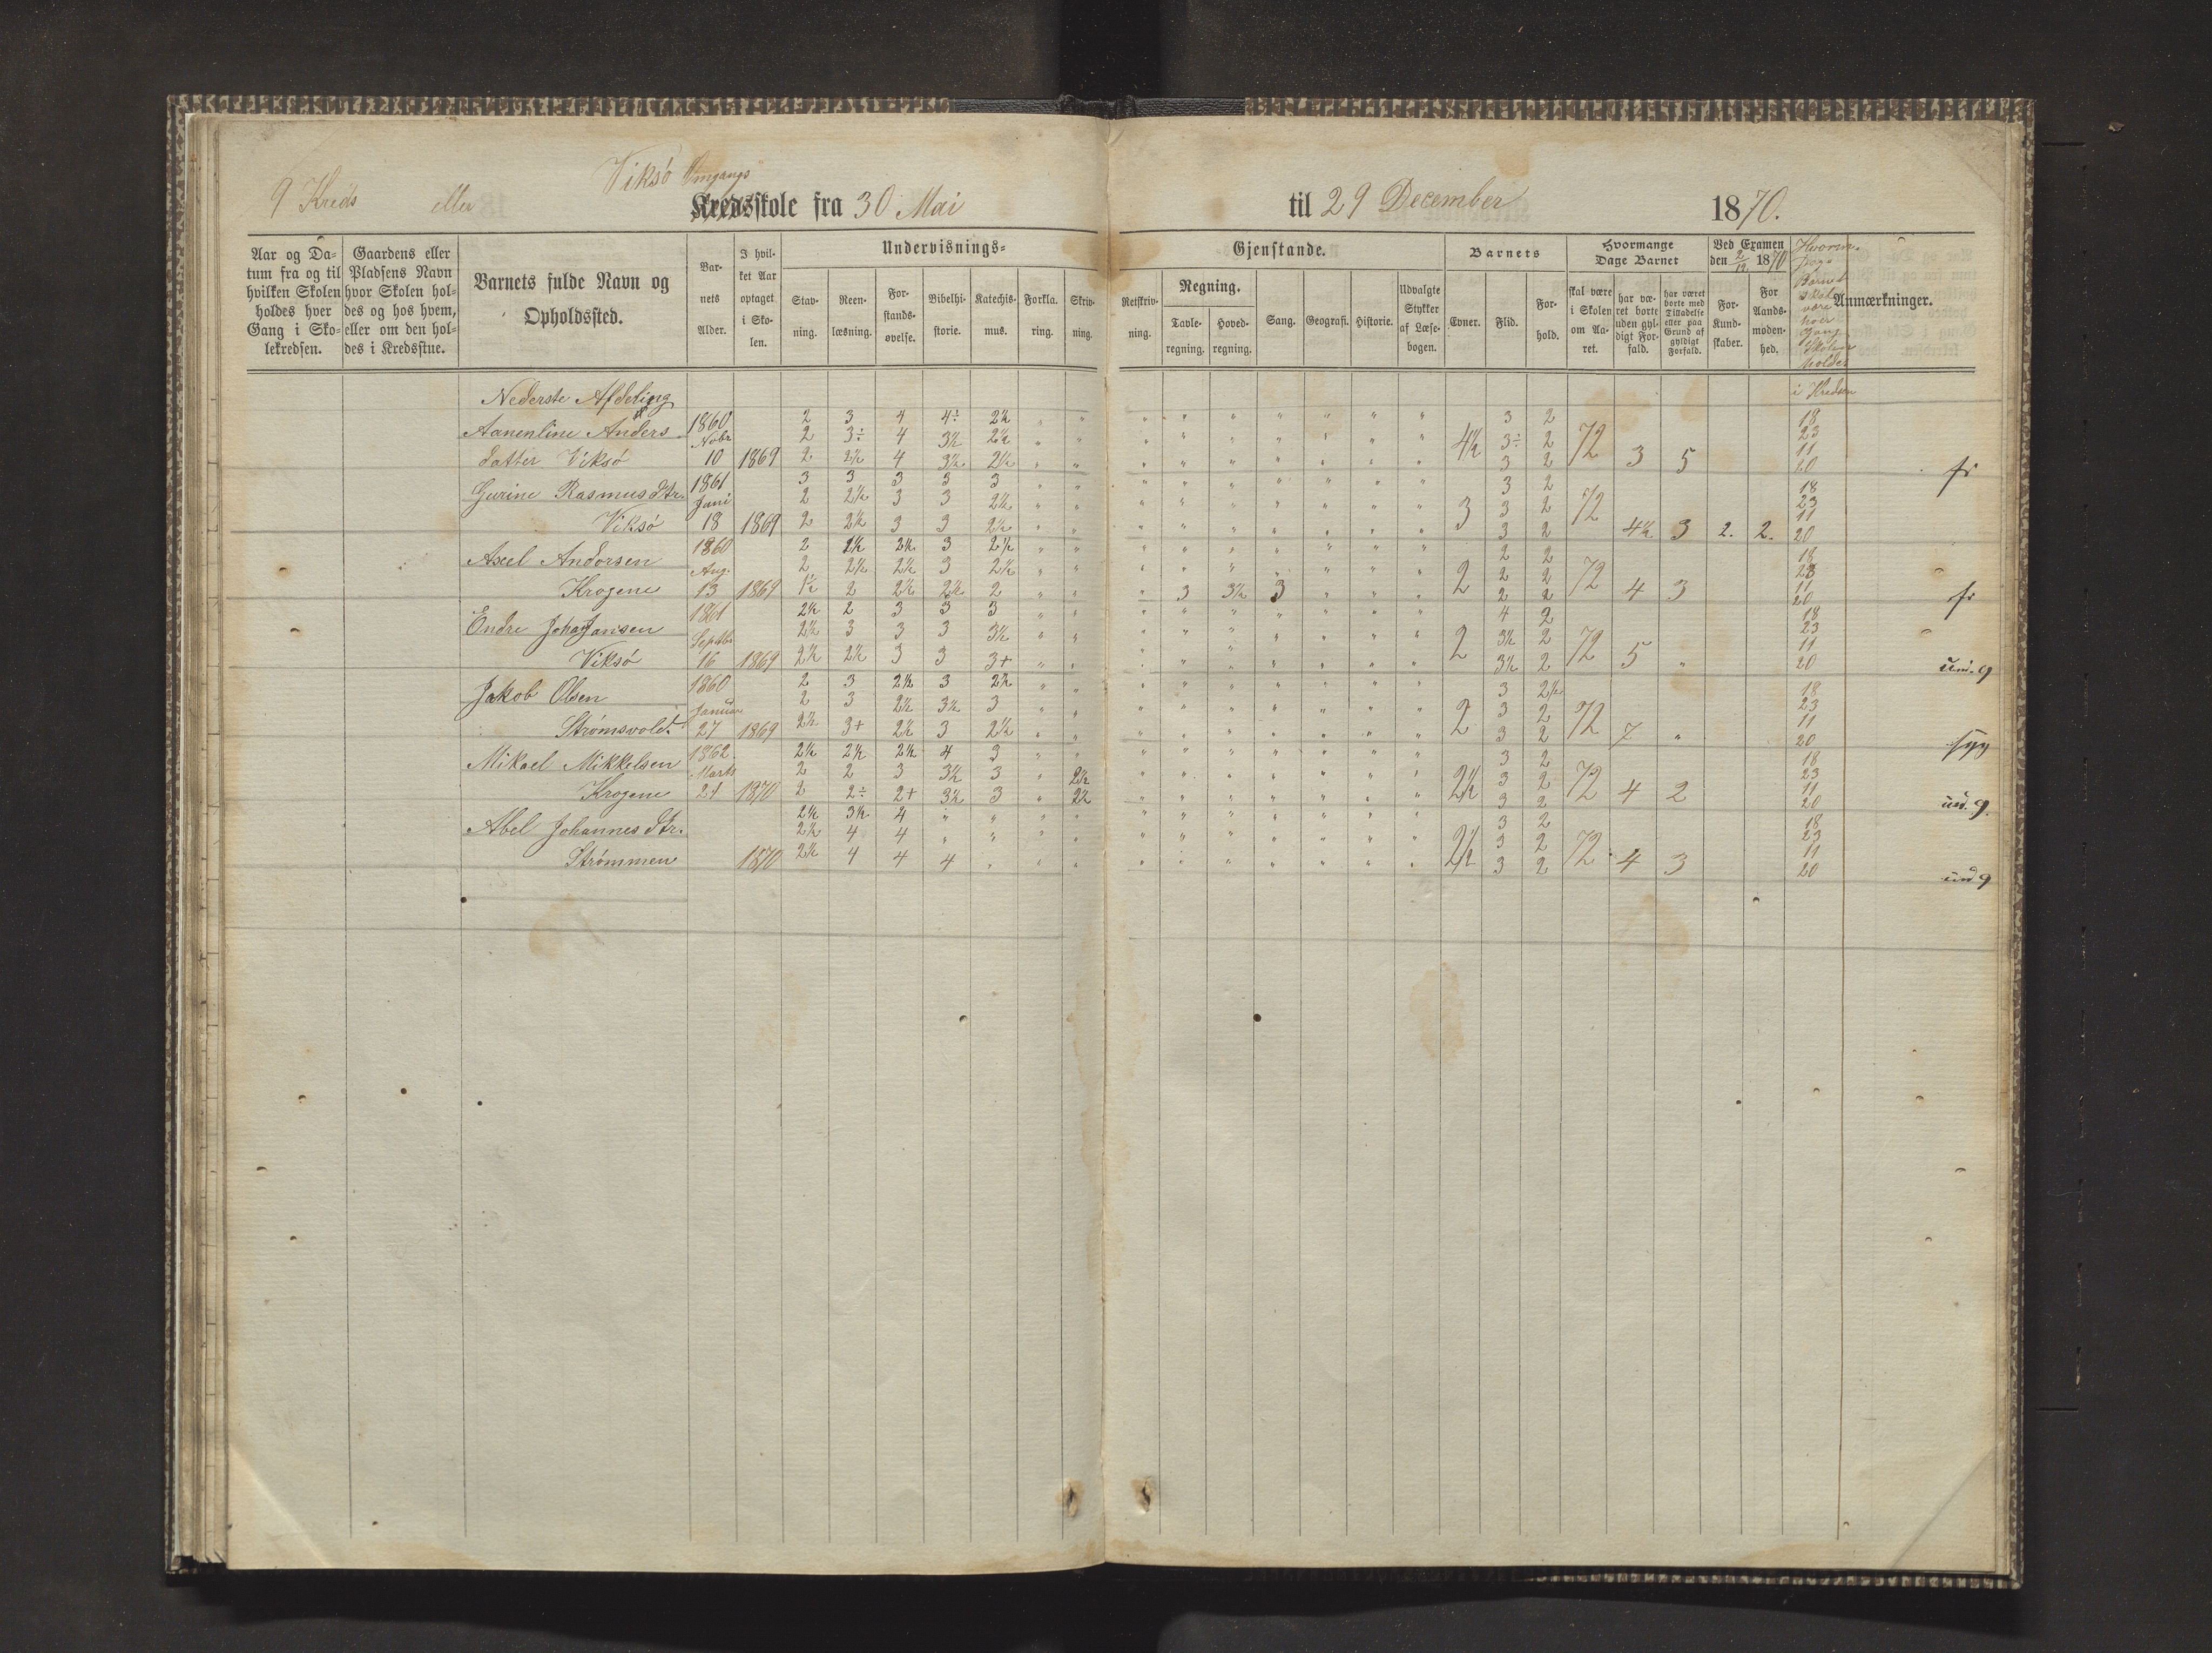 9 Kreds eller Viksö Omgangs
Kredsskole fra 30 Mai til 29 December 1870.
Aar og Da=
tum fra og til
hvilken Skolen
holdes hver
Gang i Sko=
lekredsen.
Gaardens eller
Pladsens Navn
hvor Skolen hol=
des og hos hvem,
eller om den hol=
des i Kredsstue.
Barnets fulde Navn og
Opholdssted.
Bar=
nets
Alder.
I hvil=
ket Aar
optaget
i Sko=
len.
Undervisnings=
Stav=
ning.
Reen=
læsning.
For=
stands=
øvelse.
Bibelhi=
storie.
Katechis=
mus.
Forkla=
ring.
Skriv=
ning.
Gjenstande.
Retskriv=
ning.
Regning.
Tavle=
regning.
Hoved=
regning.
Sang.
Geografi.
Historie.
Udvalgte
Stykker
af Læse=
bogen.
Barnets
Evner.
Flid.
For=
hold.
Hvormange
Dage Barnet
skal være
i Skolen
om Aa=
ret.
har væ=
ret borte
uden gyl=
digt For=
fald.
har været
borte med
Tilladelse
eller paa
Grund af
gyldigt
Forfald.
Ved Examen
den 2/12 1870
For
Kund=
skaber.
For
Aands=
moden=
hed.
Hvorm.
Dage
Barnet
skal
være
hver
Gang
Skolen
holdes
i Kredsen
Anmærkninger.
Nederste Afdeling
Aanenline Anders
datter Viksö
1860
Novbr
10 1869
2 3 4 4÷ 2½ 3 2 18
2 3÷ 4 3½ 2½ 4½ 3÷ 2 72 23
2 2½ 4 3½ 2½ 3 2 3 5 11
20 fr
Gurine Rasmusdtr.
Viksö
1861
Juni
18 1869
3 3 3 3 3 3 2 18
2 2½ 3 3 2½ 3 3 2 72 23
2 2½ 3 3 2½ 3 2 4½ 3 2. 2. 11
20
Axel Andersen
Krogene
1860
Aug.
13 1869
2 2½ 2½ 3 2½ 2 2 18
2 2½ 2½ 3 2½ 2 2 2 72 23
1½ 2 2½ 2½ 2 3 3½ 3 2 2 4 3 11
20 fr
Endre Johanjansen
Viksö
1861
Septbr
16 1869
2½ 2 3 3 3 4 2 18
2½ 3 3 3 3½ 2 3½ 2 72 23
2½ 2½ 3 3 3+ 3½ 2 5 " 11
20
Jakob Olsen
Strømsvold.
1860
Januar
27 1869
2 3 2½ 3 2½ 3 2½ 18
2 3 2½ 3½ 3 2 3 2 72 23
2½ 3+ 2½ 3 2½ 3 2 7 " 11
20 syg
Mikael Mikkelsen
Krogene
1862.
Marts
21 1870
2½ 2½ 2½ 4 3 3 2 18
2 2 3 3½ 3 2½ 2½ 3 2 72 23
2 2÷ 2+ 3½ 3 2½ 3 2 4 2 11
20 ud. g.
Abel Johannesdtr.
Strømmen
1870
2½ 3½ 4 3 2 18
2½ 4 4 2½ 3 2 72 23
2½ 4 4 4 3 2 4 3 11
20 ud g